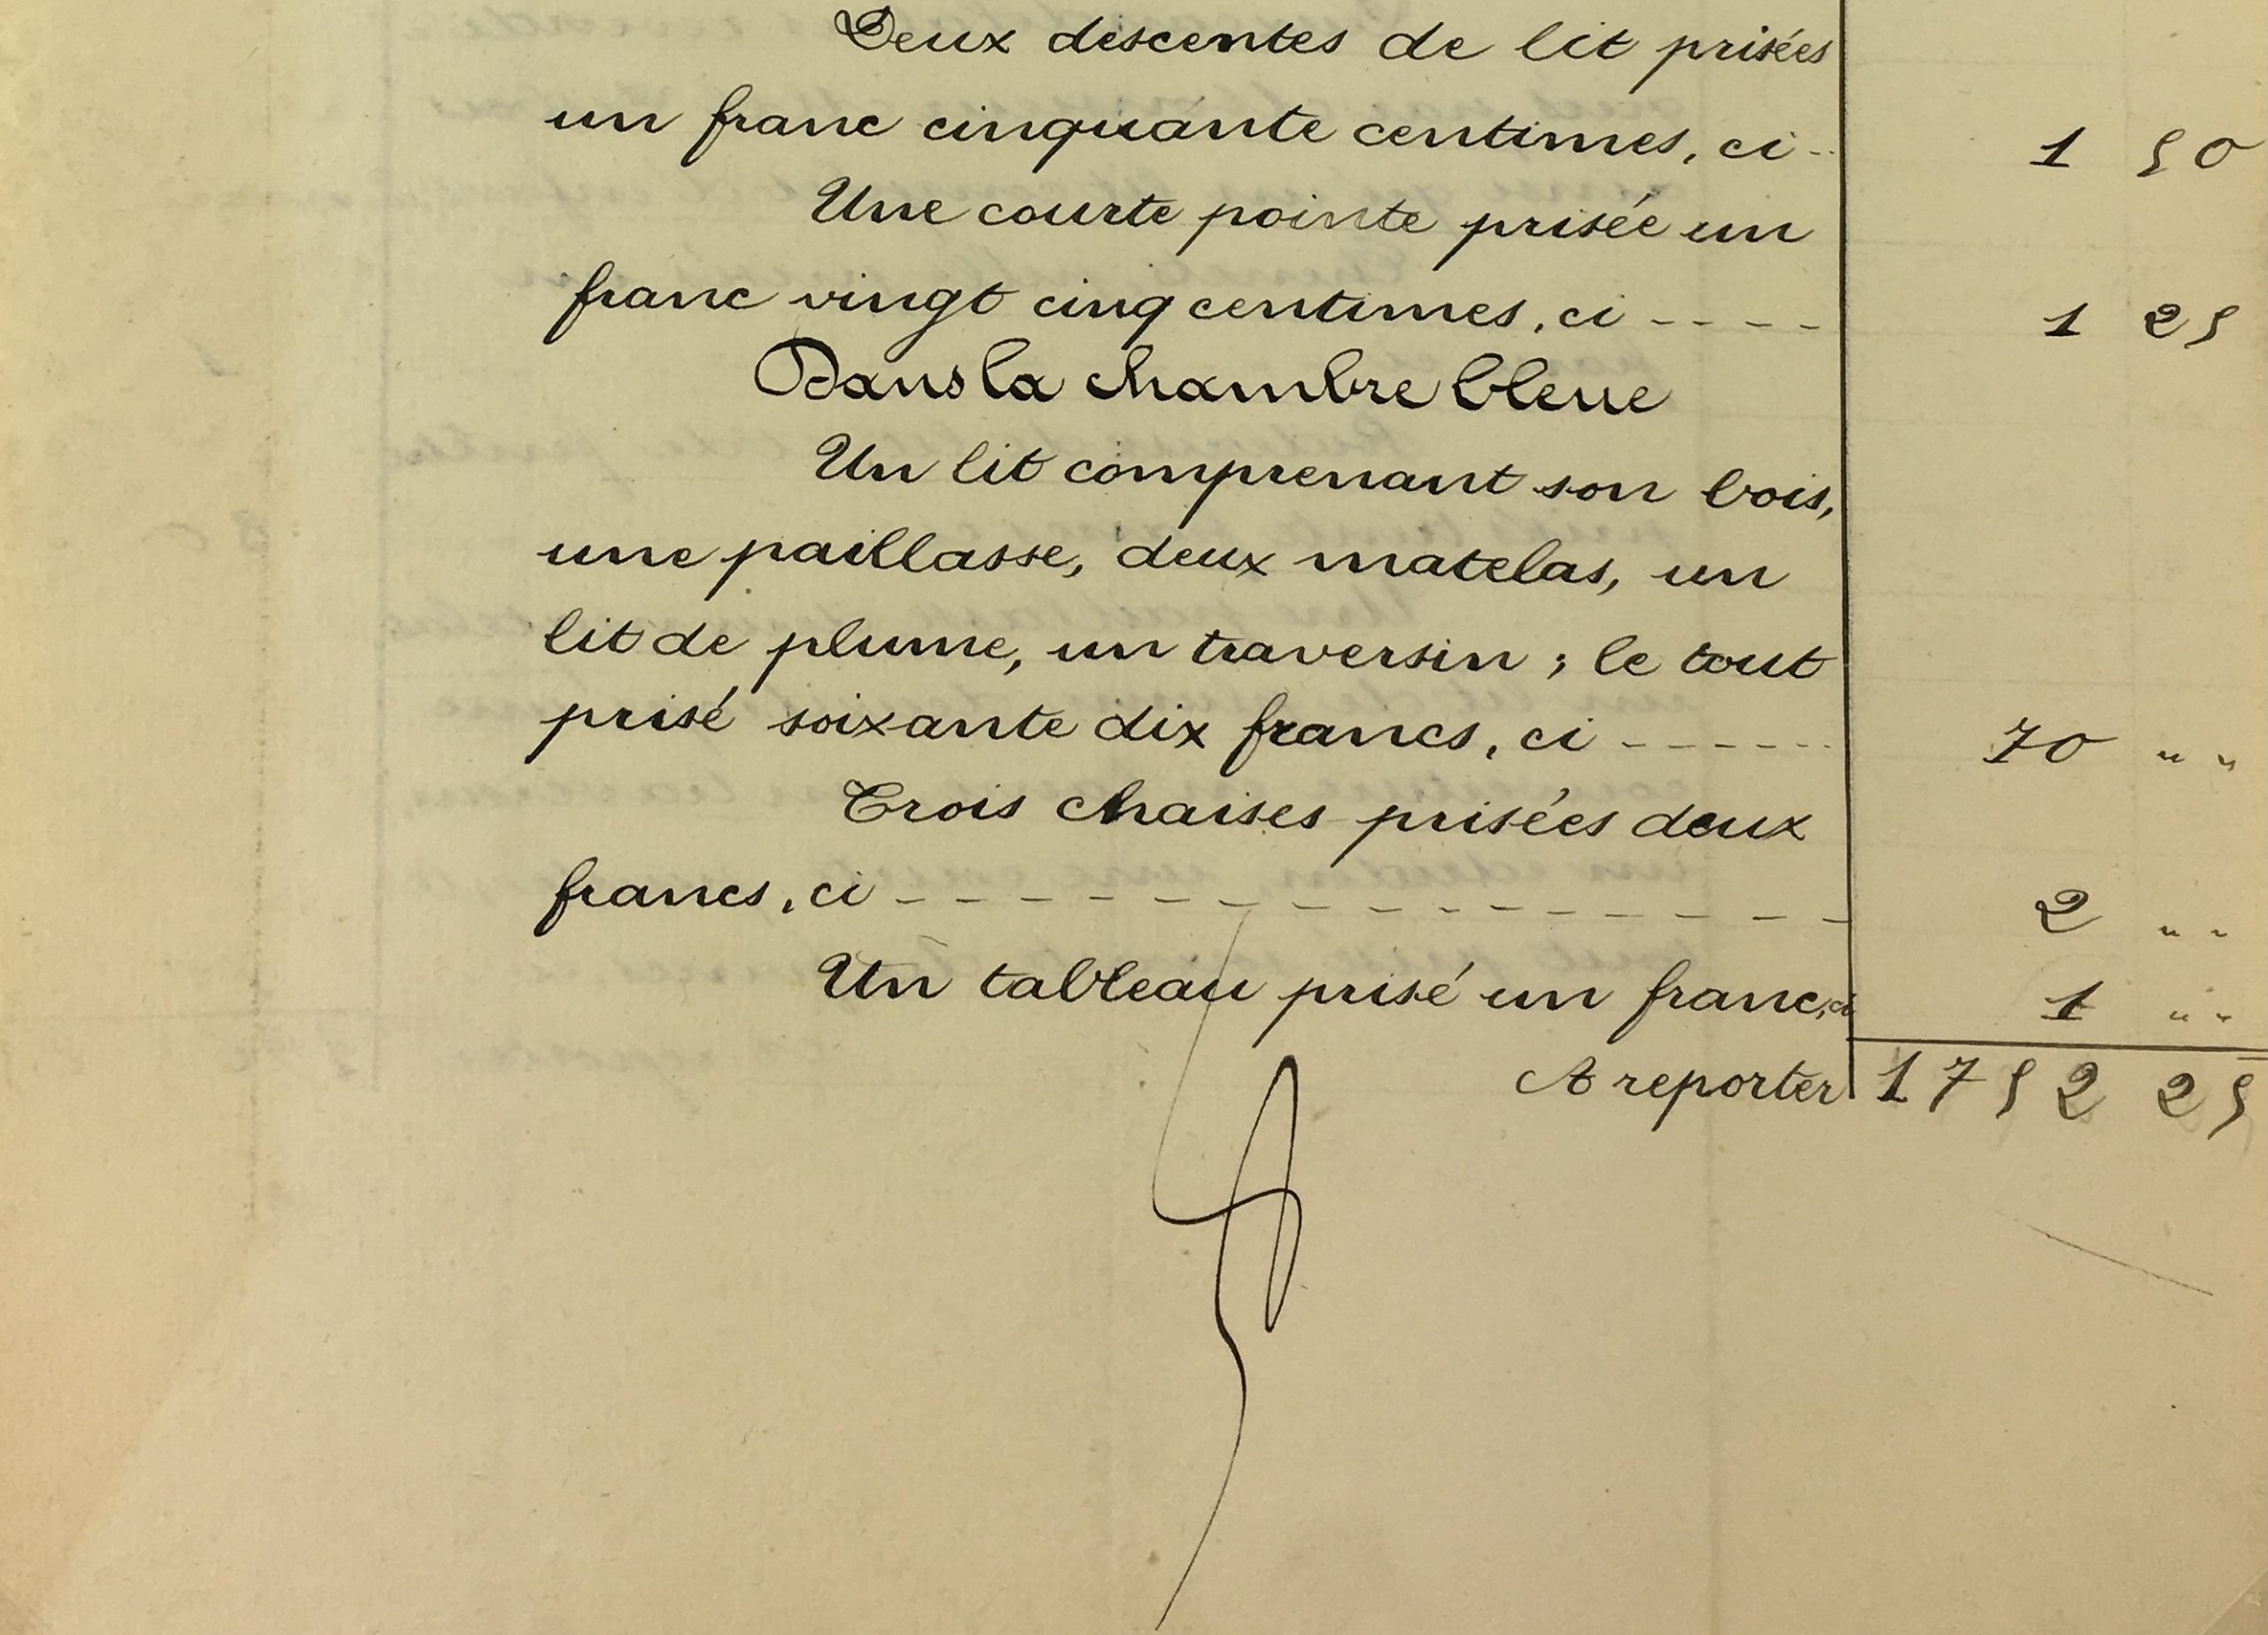 Deux descentes de lit prisées
un franc cinquante centimes, ci -- 1 50
Une courte pointe prisée un
franc vingt cinq centimes, ci ---- 1 25
Dans la chambre bleue
Un lit comprenant son bois,
une paillasse, deux matelas, un
lit de plume, un traversin ; le tout
prisé soixante dix francs, ci ------ 70 " "
Trois chaises prisées deux
francs, ci --------------- 2 " "
Un tableau prisé un franc, ci 1 " "
A reporter 1752 25